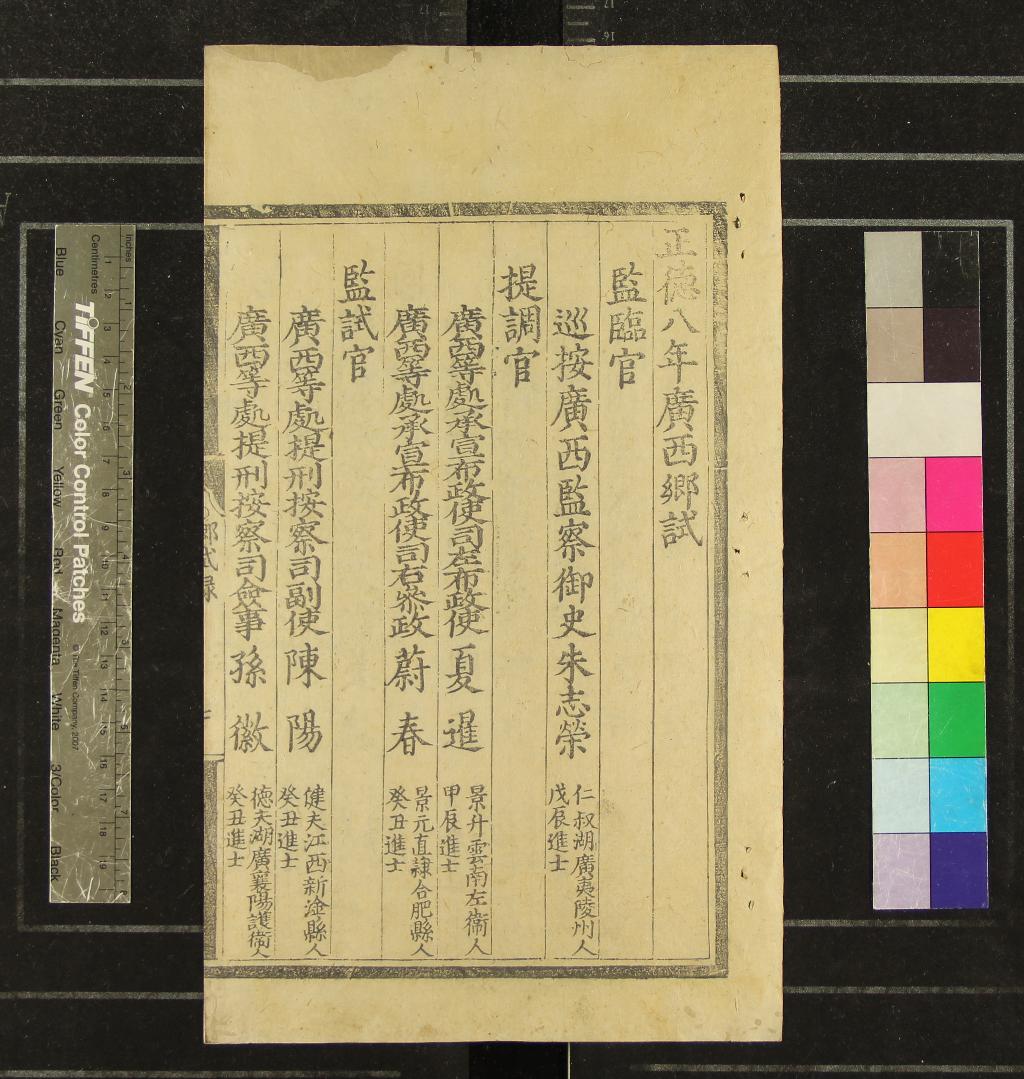 正德八年廣西鄉試
監臨官
巡按廣西監察御史朱志榮
仁叔湖廣夷陵州人
戊辰進士
提調官
廣西等處承宣布政使司左布政使夏暹
景升雲南左衞人
甲辰進士
廣西等處承宣布政使司右叅政蔚春
景元直隸合肥縣人
癸丑進士
監試官
廣西等處提刑按察司副使陳陽
健夫江西新淦縣人
癸丑進士
廣西等處提刑按察司僉事孫徽
德夫湖廣襄陽護衞人
癸丑進士
鄉試録
TIFFEN Color Control Patches
© The Tiffen Company, 2007
Inches
1 2 3 4 5 6 7 8
Centimetres
1 2 3 4 5 6 7 8 9 10 11 12 13 14 15 16 17 18 19
Blue Cyan Green Yellow Red Magenta White 3/Color Black